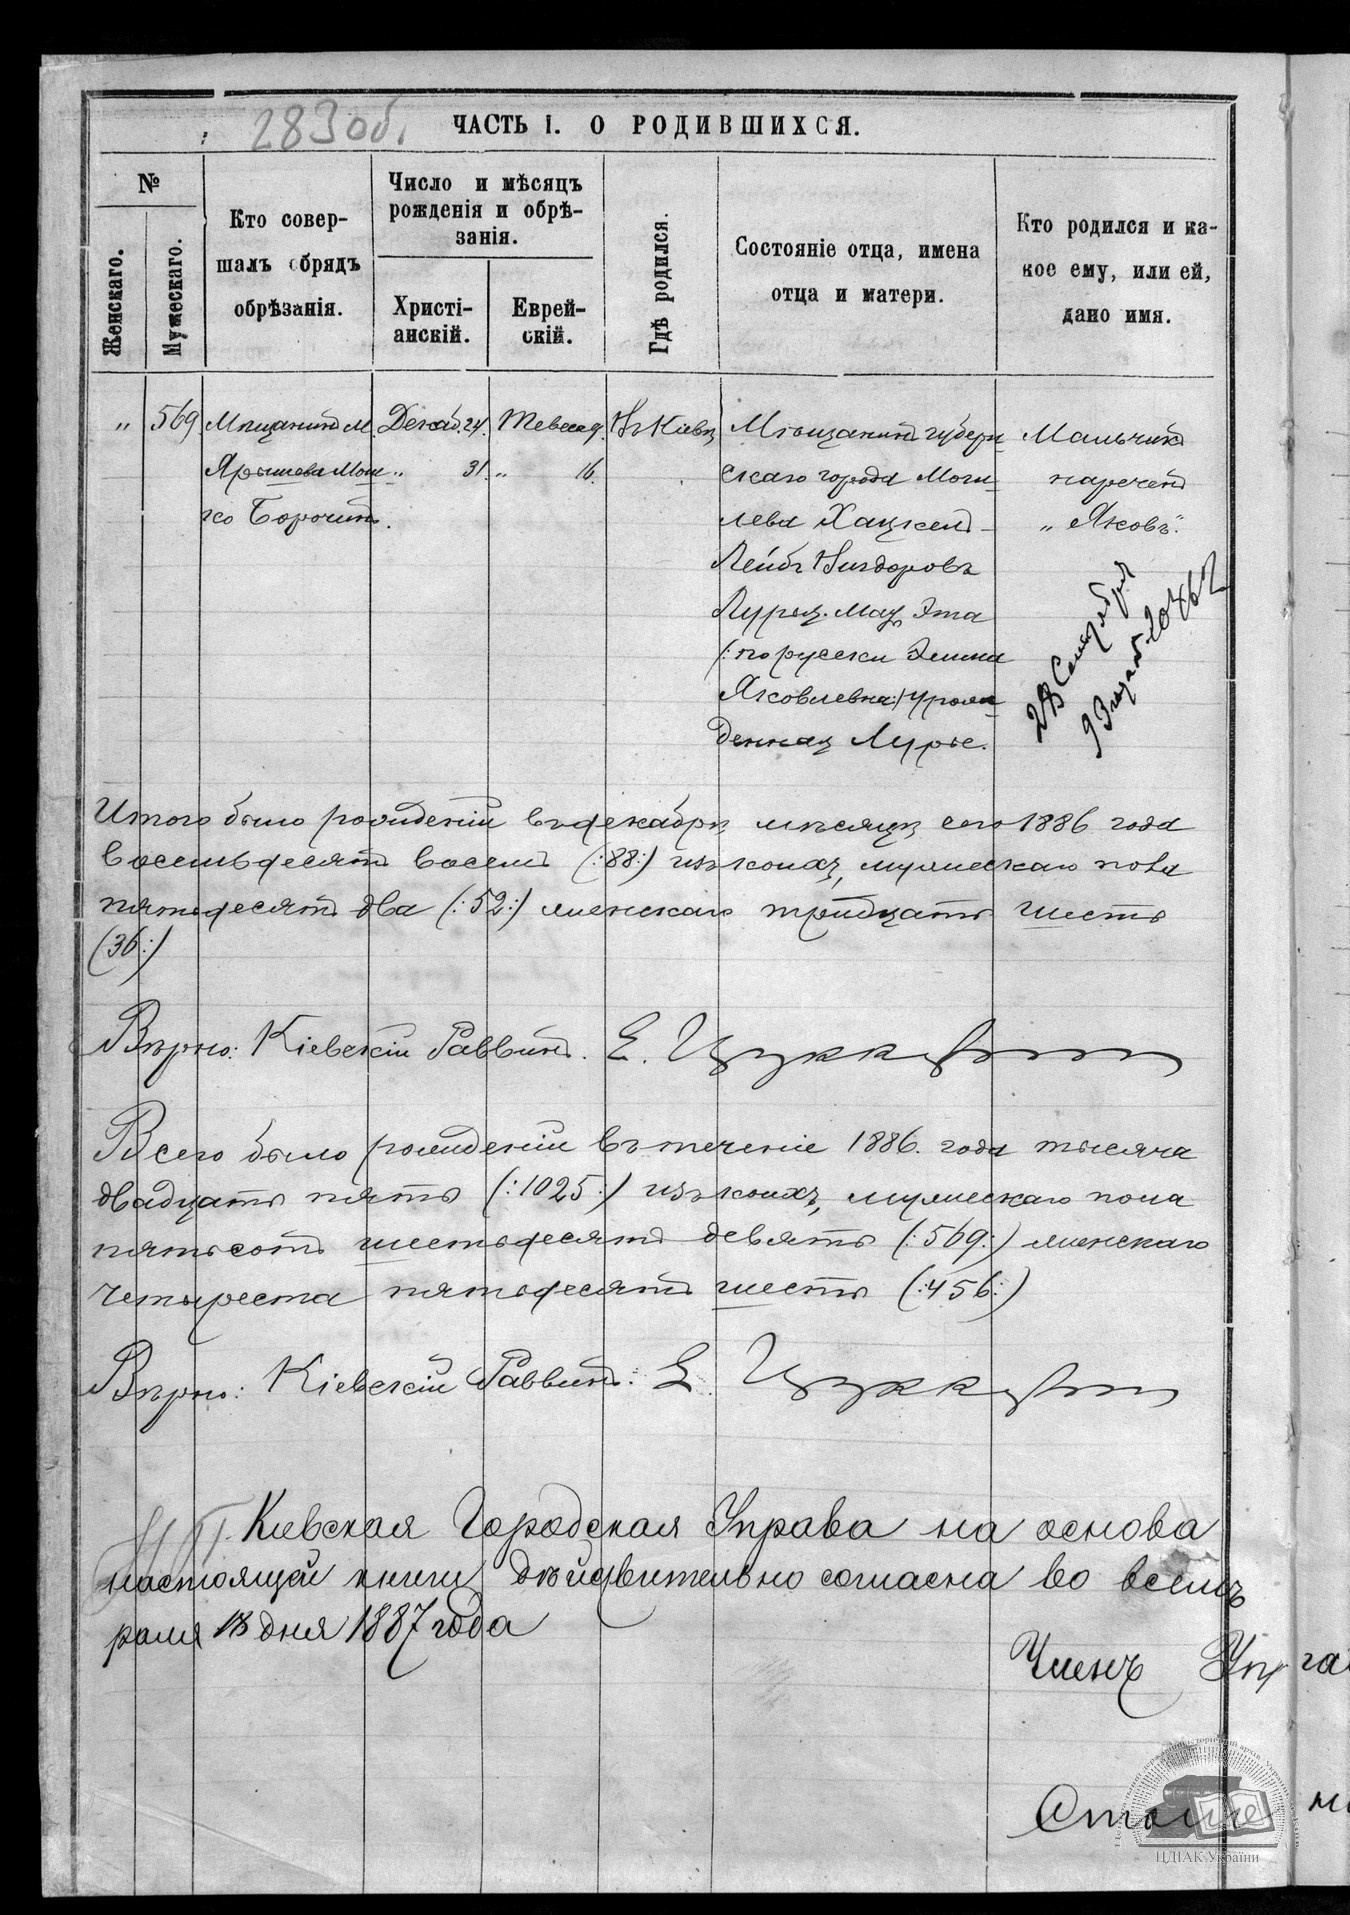 283 об.
ЧАСТЬ I. О РОДИВШИХСЯ.
№
Женскаго.
Мужескаго.
Кто совер-
шалъ обрядъ
обрѣзанія.
Число и мѣсяцъ
рожденія и обрѣ-
занія.
Христі-
анскій.
Еврей-
скій.
Гдѣ родился.
Состояніе отца, имена
отца и матери.
Кто родился и ка-
кое ему, или ей,
дано имя.
" 569 Мѣщанинъ м. Декаб. 24. Тевеса 9. Въ Кіевѣ Мѣщанинъ губерн Мальчикъ
Ярышева Мош- " 31. " 16. скаго города Моги- нареченъ
ко Бороминъ. лева Хацкелъ- „Яковъ".
Лейбъ Вигдоровъ
Лурье. Мать Эта
(: по русски Эмма
Яковлевна :) урож-
денная Лурье.
28 Сентября
Итого было рожденій въ декабрѣ мѣсяцѣ сего 1886 года
восемьдесятъ восемь (:88:) изъ коихъ, мужескаго пола
пятьдесятъ два (:52:) женскаго тридцать шесть
(36:)
Вѣрно: Кіевскій Раввинъ. Е. Цуккерманъ
Всего было рожденій въ теченіе 1886. года тысяча
двадцать пять (:1025:) изъ коихъ, мужескаго пола
пятьсотъ шестьдесятъ девять (:569:) женскаго
четыреста пятьдесятъ шесть (:456:)
Вѣрно: Кіевскій Раввинъ: Е. Цуккерманъ
Кіевская Городская Управа на основа
настоящей книги дѣйствительно согласна во всемъ
раля 18 дня 1887 года
Членъ Упра
ЦДІАК України